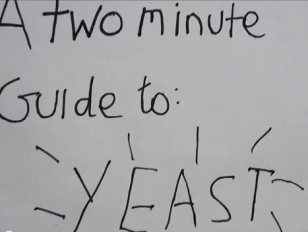 A two minute
Guide to:
YEAST